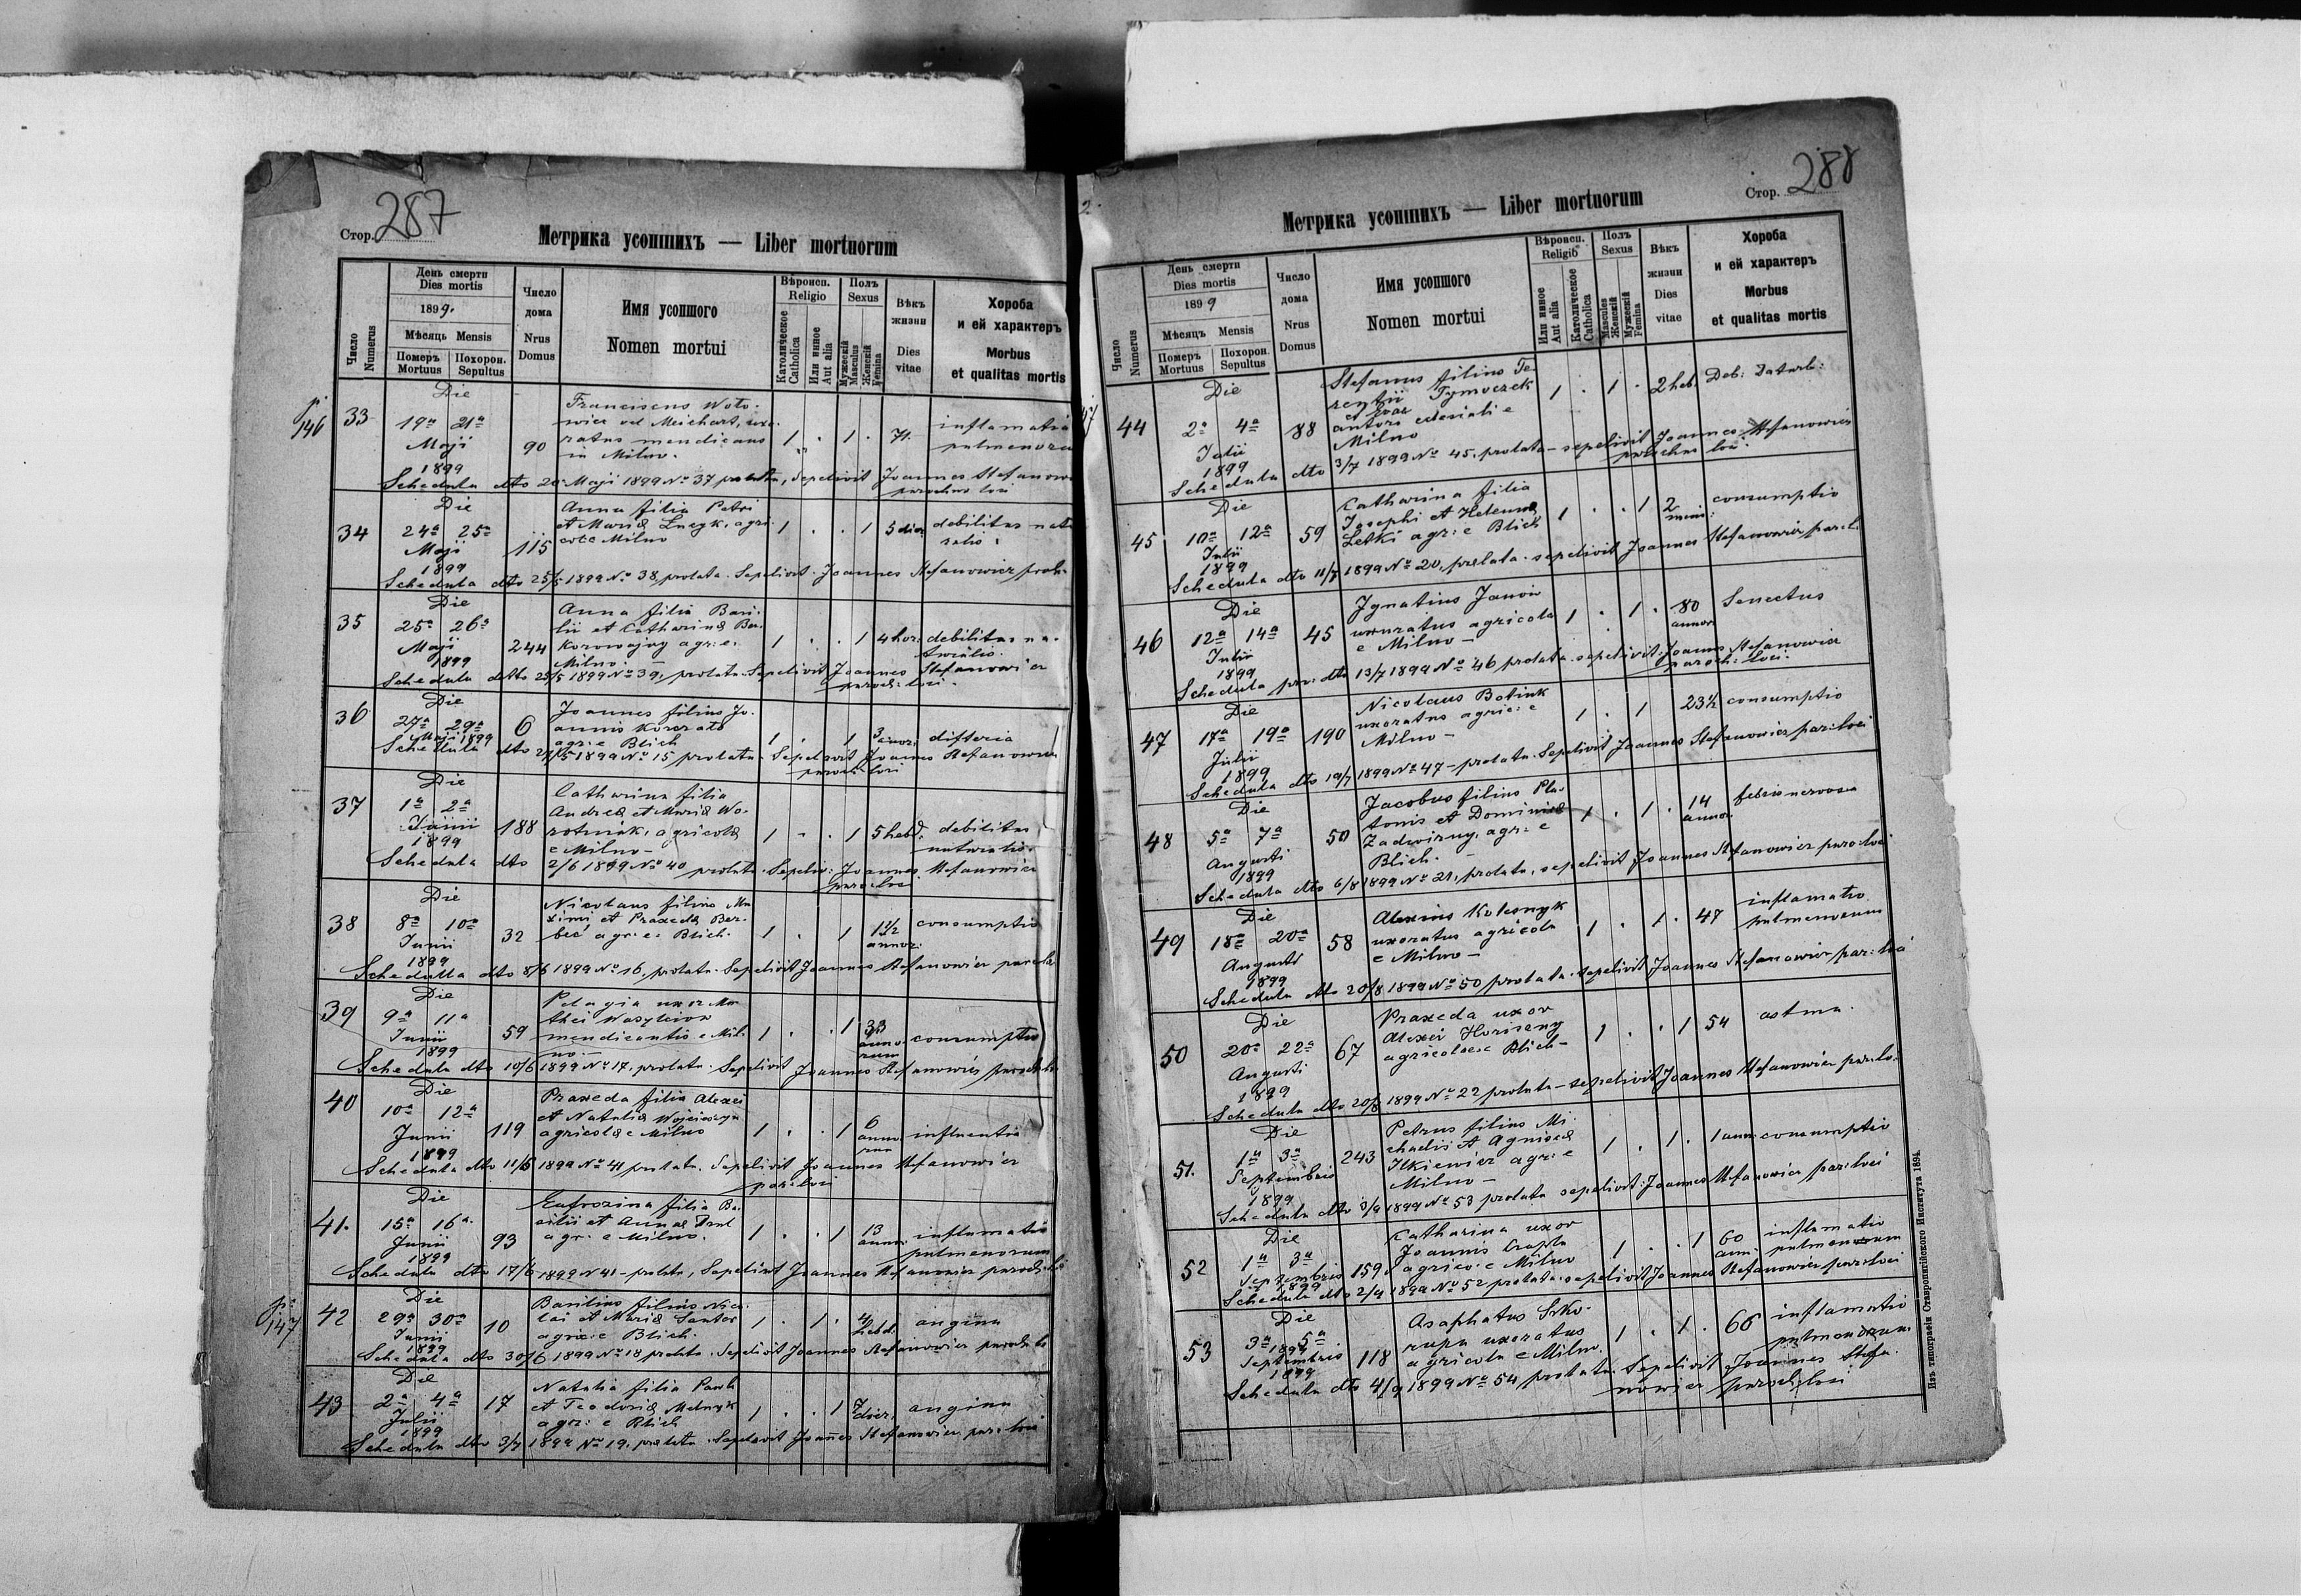 287
Стор.
Метрика усопшихъ — Liber mortuorum
Число
Numerus
День смерти
Dies mortis
1899.
Мѣсяць Mensis
Померъ
Mortuus
Похорон.
Sepultus
Число
дома
Nrus
Domus
Имя усопшого
Nomen mortui
Вѣроисп.
Religio
Католическое
Catholica
Или инное
Aut alia
Полъ
Sexus
Мужескій
Masculus
Женскій
Femina
Вѣкъ
жизни
Dies
vitae
Хороба
и ей характеръ
Morbus
et qualitas mortis
p.
146
33
Die
19ª 21ª
Maji
1899
90
Franciscus Woto-
wicz vel Meichert, uxo-
ratus mendicans
in Milno.
1 . 1 .
71.
inflamatio
Schedula dto 20 Maji 1899 Nº 37 prolata, Sepelivit Joannes
parochus loci
34
Die
24ª 25ª
Maji
1899
115
Anna filia Petri
et Mariæ agri-
colæ Milno
1 . . 1
5 dier
debilitas
Schedula dto 25/5 1899 Nº 38, prolata. Sepelivit. Joannes Stefanowicz
35
Die
25ª 26ª
Maji
1899
244
Anna filia Basi-
lii et Catharinæ Ba-
agr: e
Milno. —
1 . . 1
4 hor:
debilitas na-
turalis.
Schedula dto 25/5 1899 Nº 39, prolata. Sepelivit Joannes Stefanowicz
paroch: loci.
36
Die
27ª 29ª
Maji 1899
6
Joannes filius Jo-
annis
agr: e Blich
1 . 1
3
difteria
Schedula dto 1899 Nº 15 prolata. Sepelivit Joannes Stefanowicz
paroch: loci
37
Die
1ª 2ª
Junii
1899
188
Catharina filia
Andreæ et Mariæ Wo-
rotniak, agricolæ
e Milno —
1 . . 1
5 hebd.
debilitas
naturalis.
Schedula dto 2/6 1899 Nº 40 prolata. Sepeliv: Joannes Stefanowicz
38
Die
8ª 10ª
Junii
1899
32
Nicolaus filius Ma-
ximi et Praxedæ Ber-
beć agr: e: Blich.
1 . 1
1 1/2
annor:
consumptio
Schedulla dto 8/6 1899 Nº 16, prolata. Sepelivit Joannes Stefanowicz
39
Die
9ª 11ª
Junii
1899
59
Pelagia uxor Ma-
thei Wasylciow
mendicantis e Mil-
no. —
1 . . 1
33
anno-
rum
consumptio
Schedula dto 10/6 1899 Nº 17. prolata. Sepelivit Joannes Stefanowicz
40
Die
10ª 12ª
Junii
1899
119
Praxeda filia Alexei
et Nataliæ
agricolæ e Milno
1 . . 1
6
anno-
rum
influentia
Schedula dto 11/6 1899 Nº 41 prolata. Sepelivit Joannes Stefanowicz
par: loci
41.
Die
15ª 16ª.
Junii
1899
93
Eufrozina filia Ba-
silii et Annæ
agr: e Milno.
1 . . 1
13
annor:
inflamatio
pulmonorum
Schedula dto 17/6 1899 N 41 — prolata, Sepelivit Joannes Stefanowicz
p:
147
42
Die
29ª 30ª
Junii
1899
10
Basilius filius Nico-
lai et Mariæ Santor
agric: e Blich.
1 . 1 .
4
hebd.
angina
Schedula dto 30/6 1899 Nº 18 prolata. Sepelivit Joannes Stefanowicz
43
Die
2ª 4ª
Julii
1899
17
Natalia filia Pauli
et Teodoriæ Melnyk
agr: e Blich
1 . . 1
7
dier,
angina
Schedula dto 3/7 1899 Nº 19, prolata. Sepelivit Joannes Stefanowicz par: loci
288
Стор.
Метрика усопшихъ — Liber mortuorum
Число
Numerus
День смерти
Dies mortis
1899
Мѣсяцъ Mensis
Померъ
Mortuus
Похорон.
Sepultus
Число
дома
Nrus
Domus
Имя усопшого
Nomen mortui
Вѣроисп.
Religio
Или инное
Aut alia
Католическое
Catholica
Полъ
Sexus
Masculus
Женскій
Мужескій
Femina
Вѣкъ
жизни
Dies
vitae
Хороба
и ей характеръ
Morbus
et qualitas mortis
44
Die
2ª 4ª
Julii
1899
88
Stefanus filius Te-
rentii Tymoczek
e
Milno
1 . 1 .
2 heb.
Deb:
Schedula dto 3/7 1899 Nº 45, prolata — sepelivit Joannes Stefanowicz
parochus loci.
45
Die
10ª 12ª
Julii
1899
59
Catharina filia
Josephi et Helenæ
Letki agr: e Blich
1 . . 1
2
consumptio
Schedula dto 11/7 1899 Nº 20, prolata. sepelivit Joannes Stefanowicz
46
Die
12ª 14ª
Julii
1899
45
Ignatius Janow
uxuratus agricola
e Milno —
1 . 1 .
80
annor
Senectus
Schedula dto 13/7 1899 Nº 46 prolata. sepelivit. Joannes Stefanowicz
paroch: loci.
47
Die
17ª 19ª
Julii
1899
190
Nicolaus Botiuk
uxoratus agric: e
Milno —
1 . 1
23½
consumptio
Schedula dto 19/7 1899 Nº 47 — prolata. Sepelivit Joannes Stefanowicz par: loci
48
Die
5ª 7ª
Augusti
1899
50
Jacobus filius Pla-
tonis et Dominicæ
Zadwirny, agr: e
Blich. —
1 . 1 .
14
annor.
febris nervosa
Schedula dto 6/8 1899 Nº 21, prolata, sepelivit Joannes Stefanowicz par: loci
49
Die
18ª 20ª
Augusti
1899
58
Alexius Kolesnyk
uxoratus agricola
e Milno —
1 . 1 .
47
inflamatio
pulmonorum
Schedula dto 20/8 1899 Nº 50 prolata. sepelivit Joannes Stefanowicz par: loci
50
Die
20ª 22ª
Augusti
1899
67
Praxeda uxor
Alexii Horiszny
agricolæ e Blich —
1 . . 1
54
astma.
Schedula dto 20/8 1899 Nº 22 prolata — sepelivit Joannes Stefanowicz par: lo:
51.
Die
1ª 3ª
Septembris
1899
243
Petrus filius Mi-
chaelis et Agniscæ
Ilkiewicz agr: e
Milno —
1 . 1 .
1 ann:
consumptio
Schedula dto 3/9 1899 Nº 53 prolata sepelivit: Joannes Stefanowicz par: loci
52
Die
1ª 3ª
Septembris
1899
159
Catharina uxor
Joannis Czapla
agrico: e Milno
1 . . 1
60
ann:
inflamatio
pulmonorum
Schedula dto 2/9 1899 Nº 52 prolata. sepelivit Joannes Stefanowicz par: loci
53
Die
3ª 5ª
1899
Septembris
1899
118
Asaphatus Sko-
rupa uxoratus
agricola e Milno.
1 . 1 .
66
inflamatio
pulmonorum
Schedula dto 4/9 1899 Nº 54 prolata. Sepelivit Joannes Stefa-
nowicz paroch: loci
Изъ типографіи Ставропигійского Института 1894.